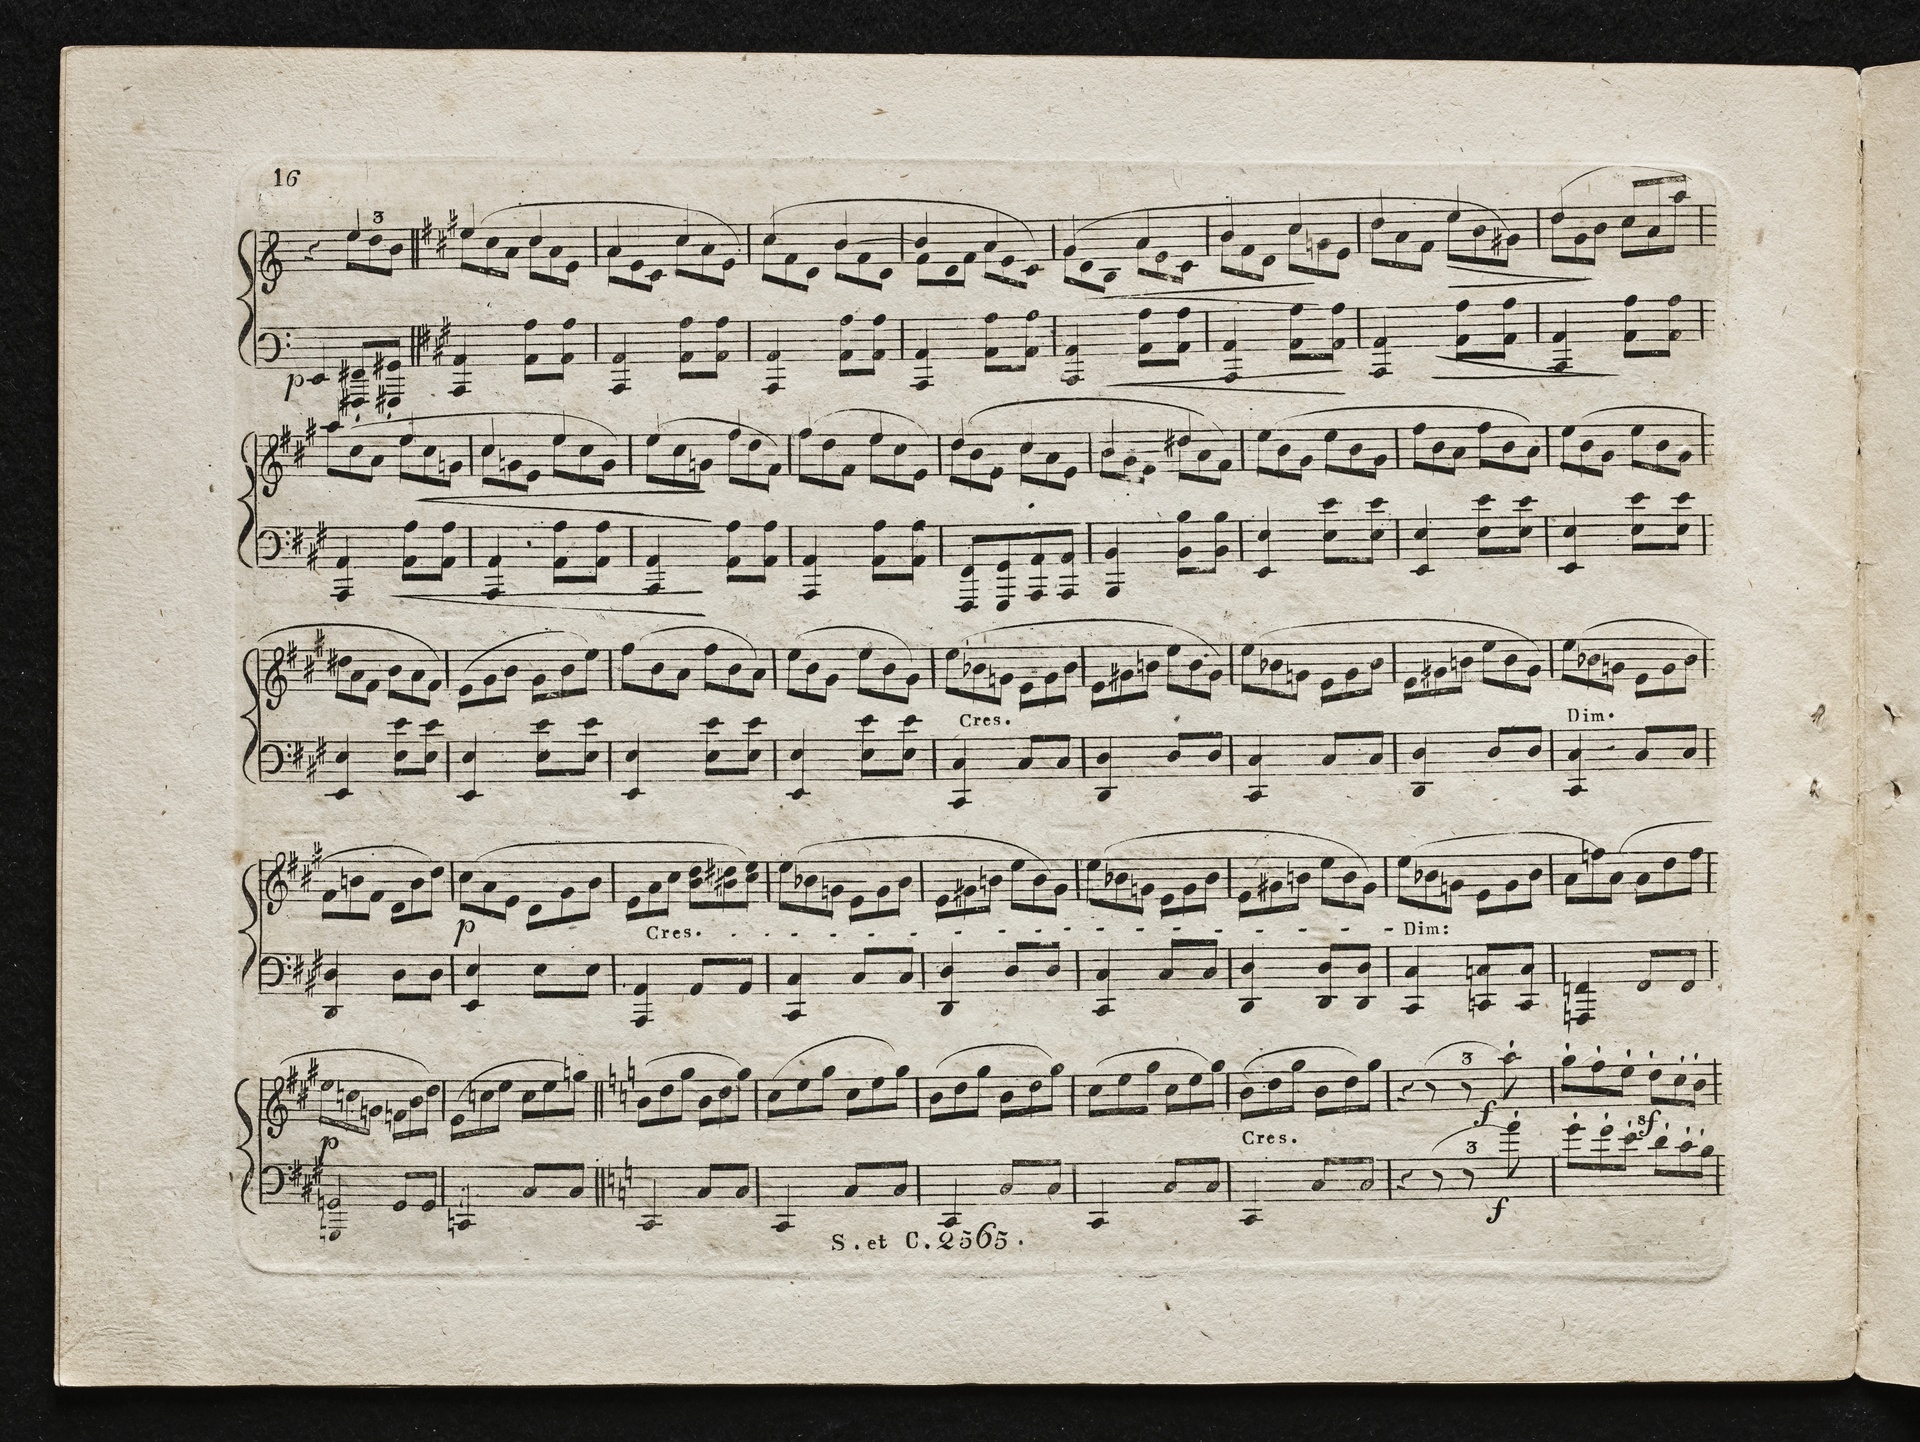 16
3
p
Cres. Dim.
p Cres. - - - - - - - - - - - - - - - - - - Dim:
3
p f sf
Cres. 3
f
S. et C. 2565.